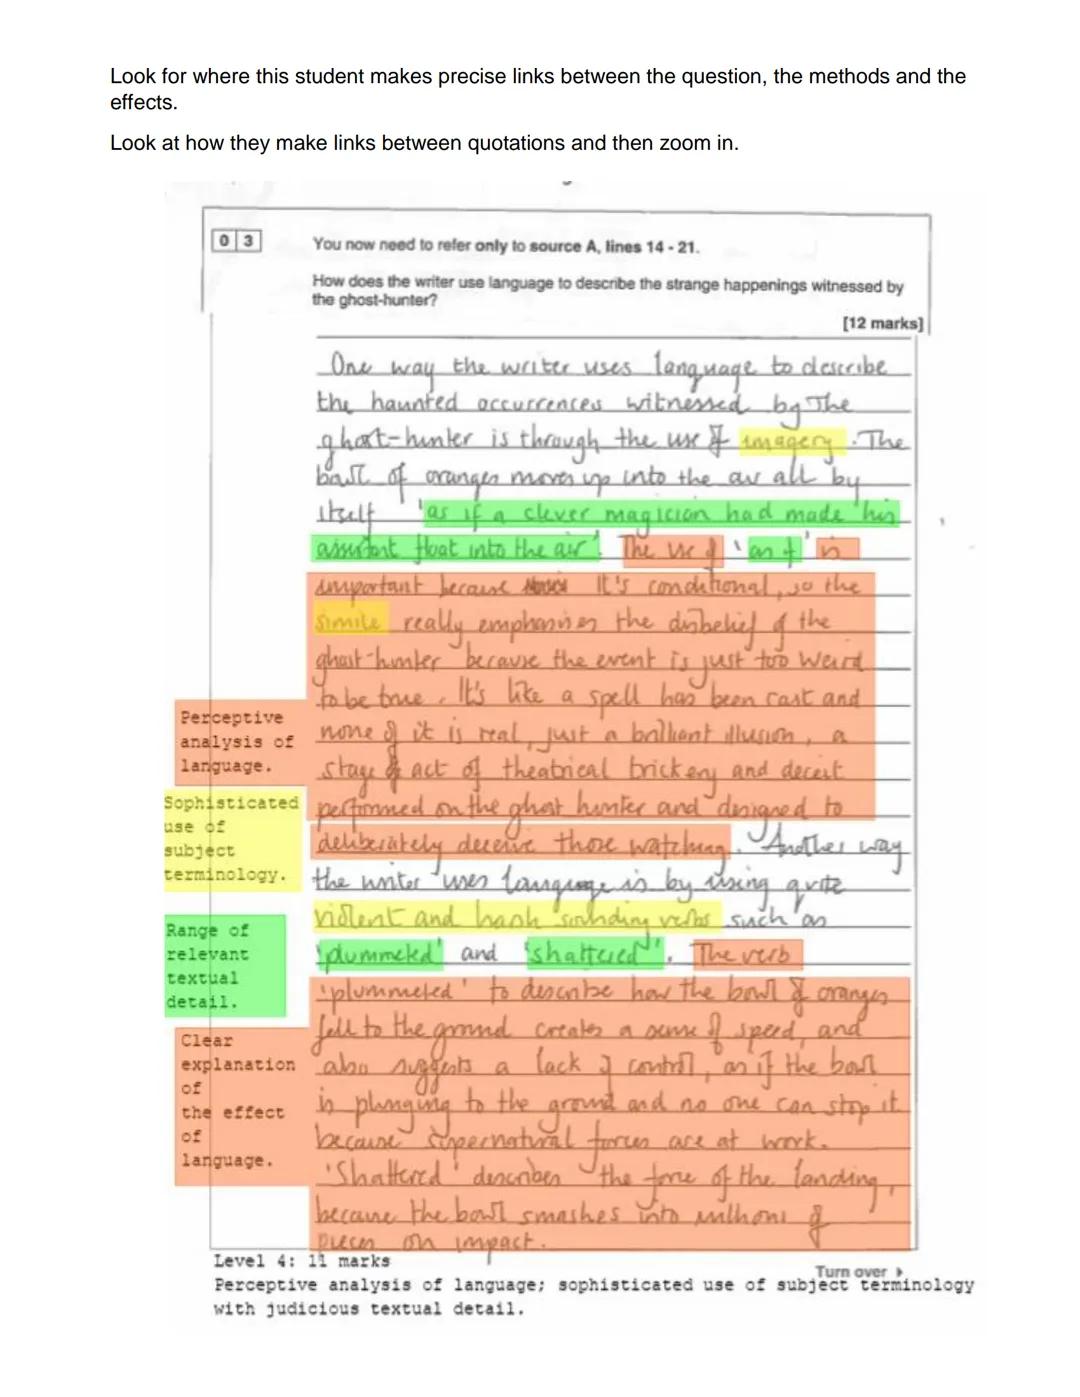 Look for where this student makes precise links between the question, the methods and the
effects.
Look at how they make links between quotations and then zoom in.
0 3
You now need to refer only to source A, lines 14 - 21.
How does the writer use language to describe the strange happenings witnessed by
the ghost-hunter?
[12 marks]
One way the writer uses language to describe
the haunted occurrences witnessed by The
ghost-hunter is through the use of imagery. The
bowl of oranges moves up into the air all by
itself 'as if a clever magician had made his
assistant float into the air'. The use of 'as if' is
important because it's conditional, so the
simile really emphasises the disbelief of the
ghost-hunter because the event is just too weird
to be true. It's like a spell has been cast and
none of it is real, just a brilliant illusion, a
stage act of theatrical trickery and deceit
performed on the ghost hunter and designed to
deliberately deceive those watching. Another way
the writer uses language is by using quite
violent and harsh sounding verbs such as
'plummeted' and 'shattered'. The verb
'plummeted' to describe how the bowl of oranges
fell to the ground creates a sense of speed, and
also suggests a lack of control, as if the bowl
is plunging to the ground and no one can stop it
because supernatural forces are at work.
'Shattered' describes the force of the landing,
because the bowl smashes into millions of
pieces on impact.
Perceptive
analysis of
language.
Sophisticated
use of
subject
terminology.
Range of
relevant
textual
detail.
Clear
explanation
of
the effect
of
language.
Turn over
Level 4: 11 marks
Perceptive analysis of language; sophisticated use of subject terminology
with judicious textual detail.